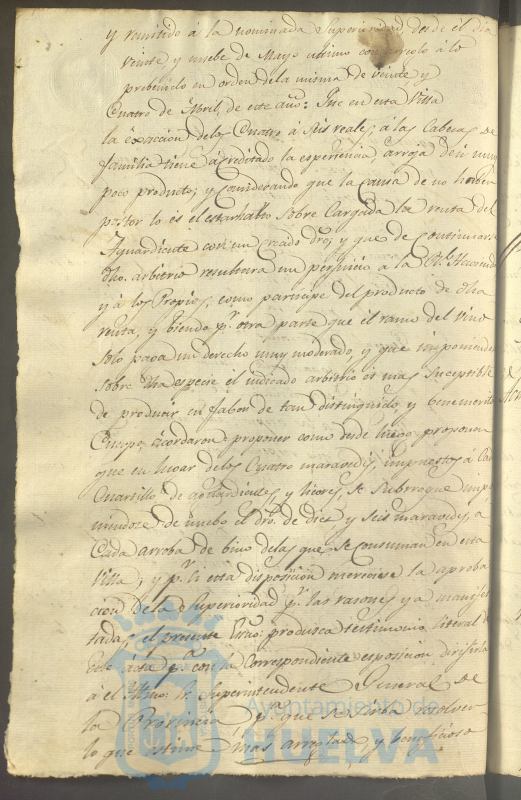 y remitido á la nominada Superioridad, desde el dia
veinte y nuebe de Mayo ultimo con arreglo á lo
prebenido en orden dela misma de veinte y
Cuatro de Abril, de este año: Que en esta Villa
la exaccion delos Cuatro á seis reales, á las Cabezas de
familia tiene acreditado la esperiencia, arroja de sí muy
poco producto; y Considerando que la Causa de no haber
postor lo es el estar sobre Cargada la renta del
Aguardiente con un Creado dro, y que de Continuarse
dho. arbitrio resultara un perjuicio a la Rl. Hacienda
y á los Propios, como participe del producto de dha
renta, y biendo pr. otra parte que el ramo del Vino
solo paga un derecho muy moderado, y que imponiendo
sobre dha especie el indicado arbitrio es mas suceptible
de producir en fabor de tan distinguido, y benemerito
Cuerpo, acordaron proponer como desde luego proponen
que en lugar delos Cuatro maravedis, impuestos á Cada
Cuartillo de aguardiente, y licores, se Subrrogue impo
niendose de nuebo el dro. de diez y seis maravedis, a
Cada arroba de bino delas que se Consuman en esta
Villa; y pr. si esta disposicion mereciese la aproba
cion de la Superioridad pr. las rasones ya manifes
tadas, el presente Srio. produsca testimonio literal de
este pa. qe. con la Correspondiente esposicion dirijirla
á el Illmo. Sr. Superintendente General de
la Provincia, pa. que se sirba resolver
lo que estime mas arreglado, y beneficioso
Ayuntamiento de
HUELVA